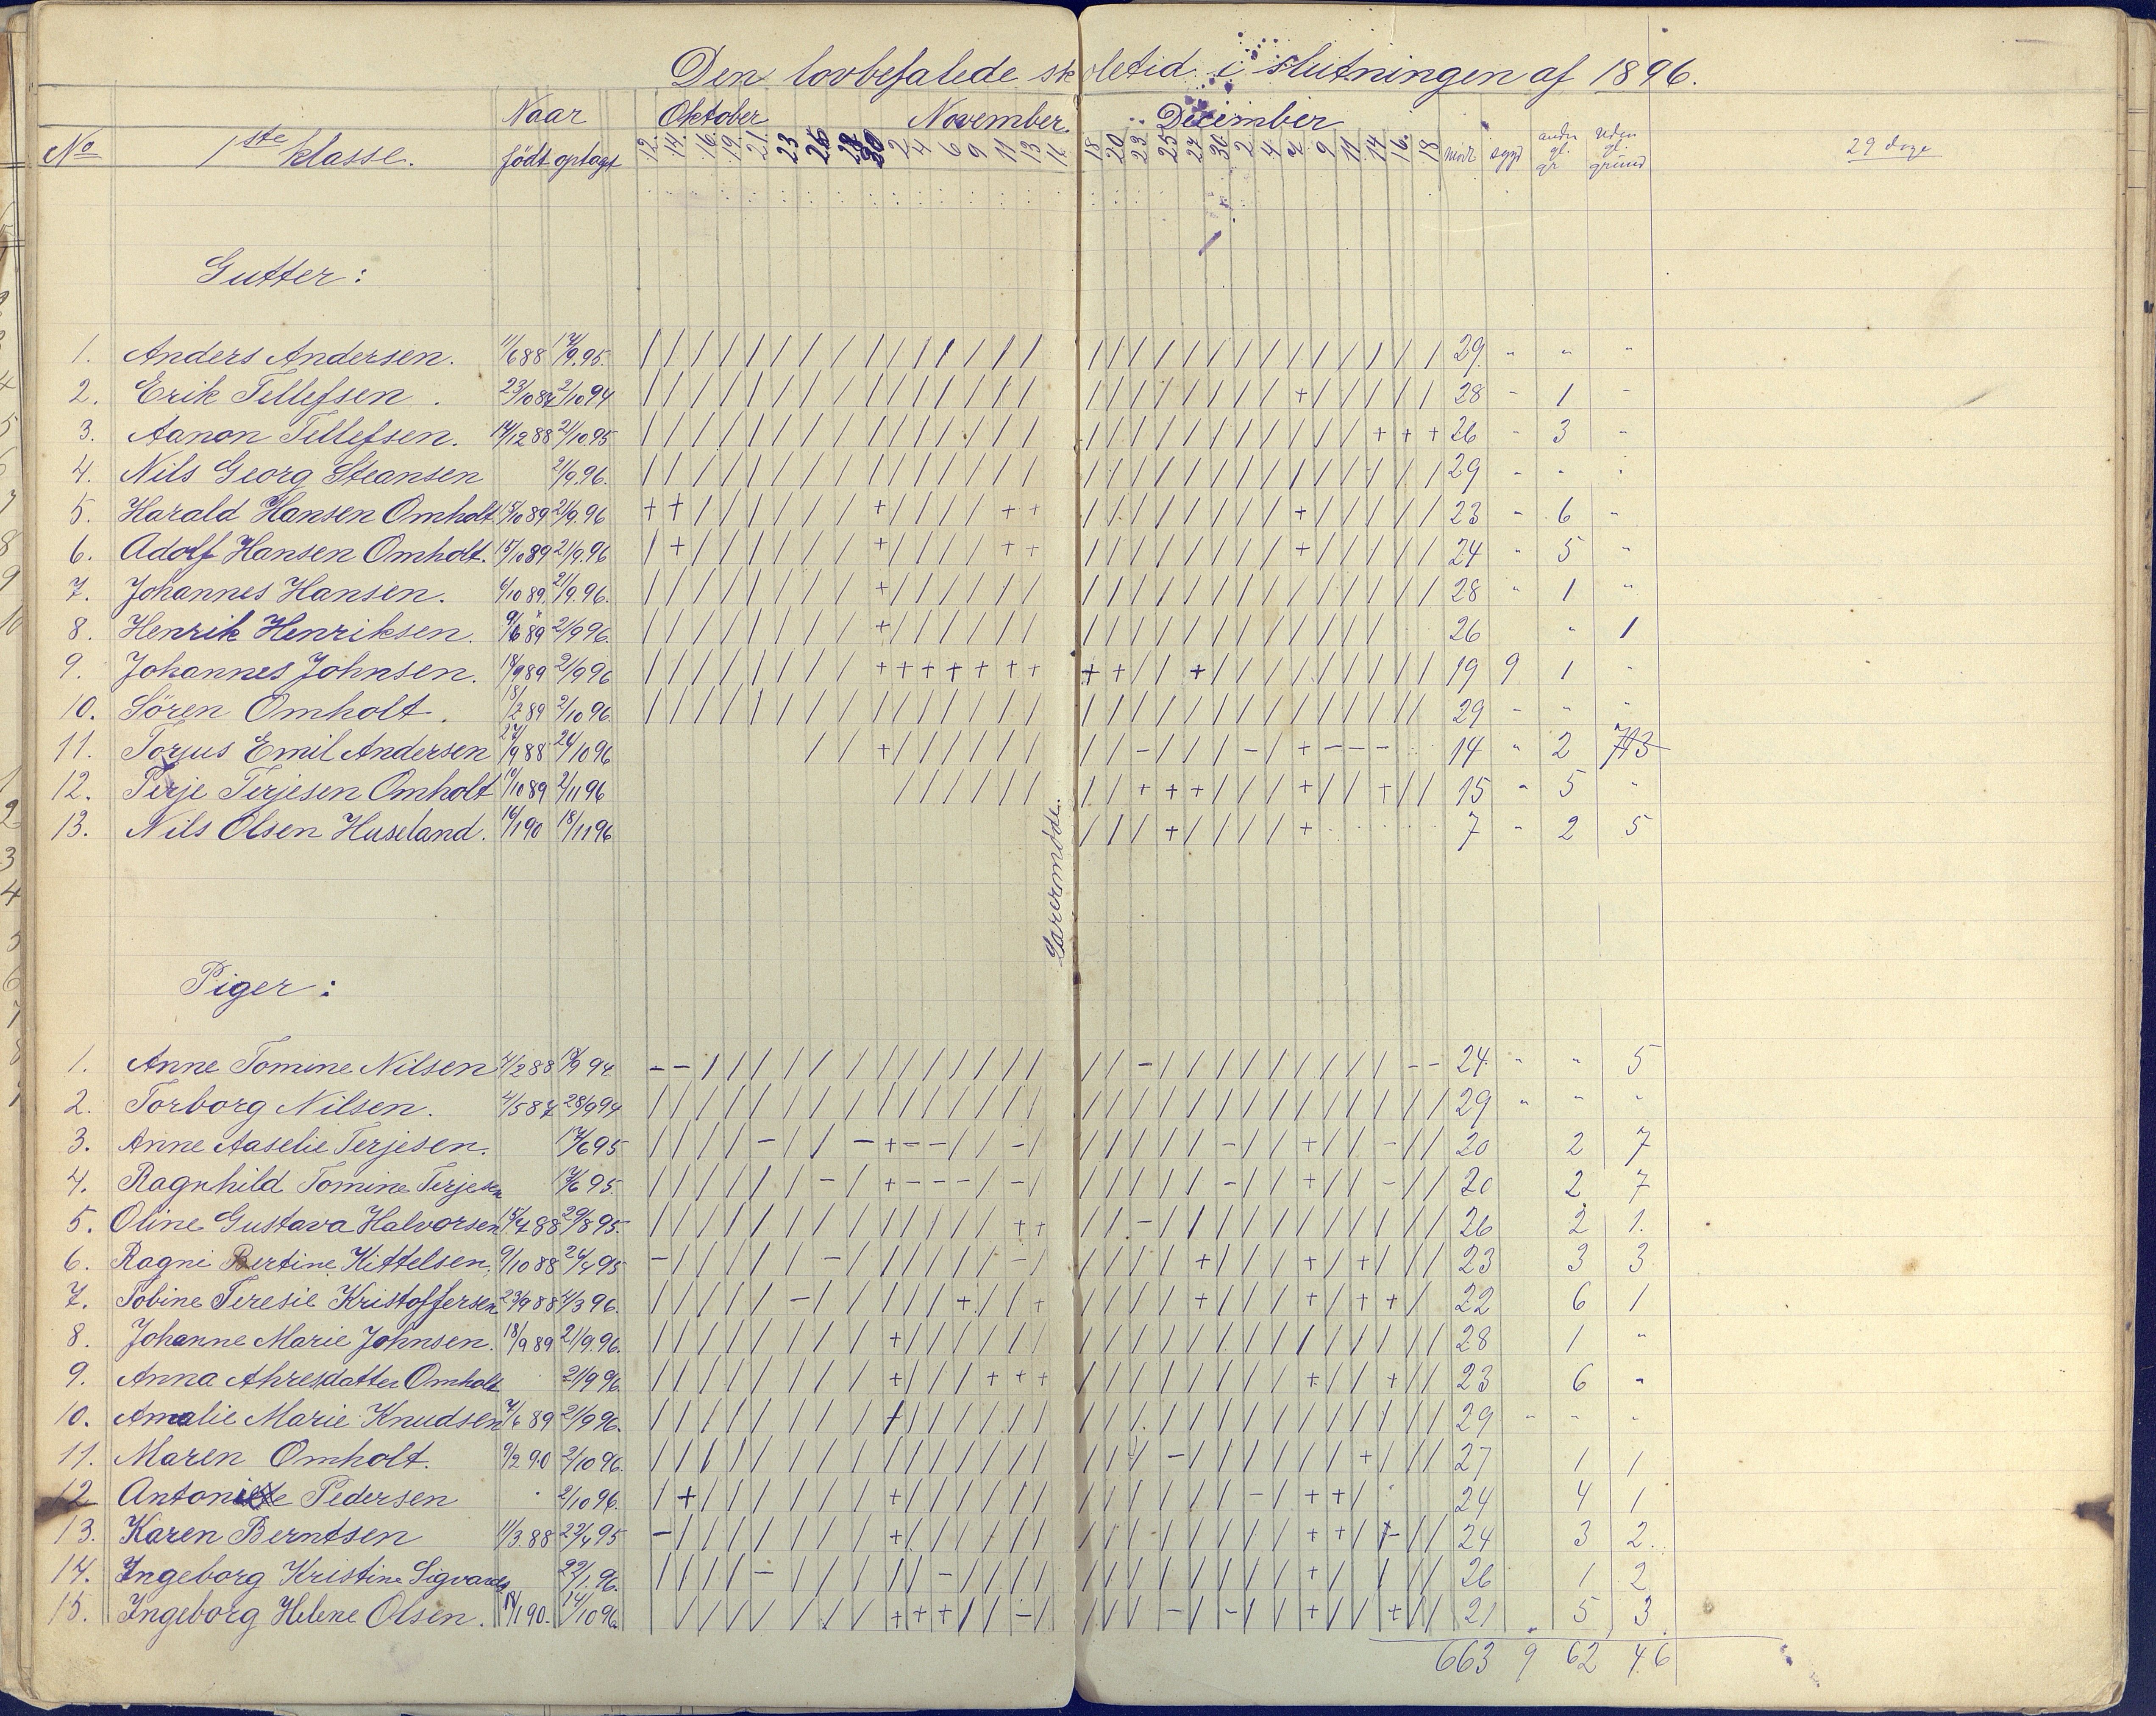 Den lovbefalede skoletid i slutningen af 1896.
Naar Oktober November. December
No 1ste klasse. født optagt 12. 14. 16. 19. 21. 23 26 28 30 2 4 6 9 11 13 16. 18 20 23 25 27 30 2 4 7 9 11 14 16. 18 uden gl. grund 29 dage
Gutter:
1. Anders Andersen. 11/6 88 29. " " "
2. Erik Tellefsen. 23/10 87 2/10 94 28 - 1 -
3. Aanon Tellefsen. 14/12 88 2/10.95 26 - 3 "
4. Nils Georg 21/9.96. 29 " " "
5. Harald Hansen Omholt 15/10 89 21/9.96 23 " 6 "
6. Adolf Hansen Omholt. 15/10 89 21/9.96 24 " 5 "
7. Johannes Hansen. 6/10 89. 21/9.96. 28 " 1 "
8. Henrik Henriksen. 9/6 89 21/9 96. 26 " 1
9. Johannes Johnsen. 18/9 89 21/9 96 19 9 1 "
10. Sören Omholt. 18/2 89 2/10 96. 29 - " "
11. Torjus Emil Andersen 27/9 88 26/10 96 14 " 2
12. Terje Terjesen Omholt 19/10 89 2/11 96 15 " 5 "
13. Nils Olsen Huseland. 16/1 90 18/11 96 7 " 2 5
Lærermöde.
Piger:
1. Anne Tomine Nilsen 4/2 88 18/9 94 24. " " 5
2. Torborg Nilsen. 4/5 87 28/9 94 29 " " "
3. Anne Aaselie Terjesen. 17/6 95 20 2 7
4. Ragnhild Tomine Terjesen 17/6 95. 20 2 7
5. Oline Gustava Halvorsen 15/4 88 29/8 95. 26 2 1.
6. Ragni Bertine Kittelsen. 9/10 88 24/4 95 23 3 3
7. Tobine Teresie Kristoffersen 23/9 88 4/3 96. 22 6 1
8. Johanne Marie Johnsen. 18/9 89 21/9.96. 28 1 "
9. Anna Omholt 21/9 96 23 6 "
10. Amalie Marie Knudsen 7/6 89 21/9 96. 29 " " "
11. Maren Omholt. 9/2 90 2/10 96. 27 1 1
12 Pedersen 2/10 96. 24 4 1
13. Karen Berntsen 11/3.88 22/4 95 24 3 2.
14. Ingeborg Kristine 22/1.96. 26 1 2
15. Ingeborg Helene Olsen. 18/1 90. 14/10 96. 21 5 3
663 9 62 46